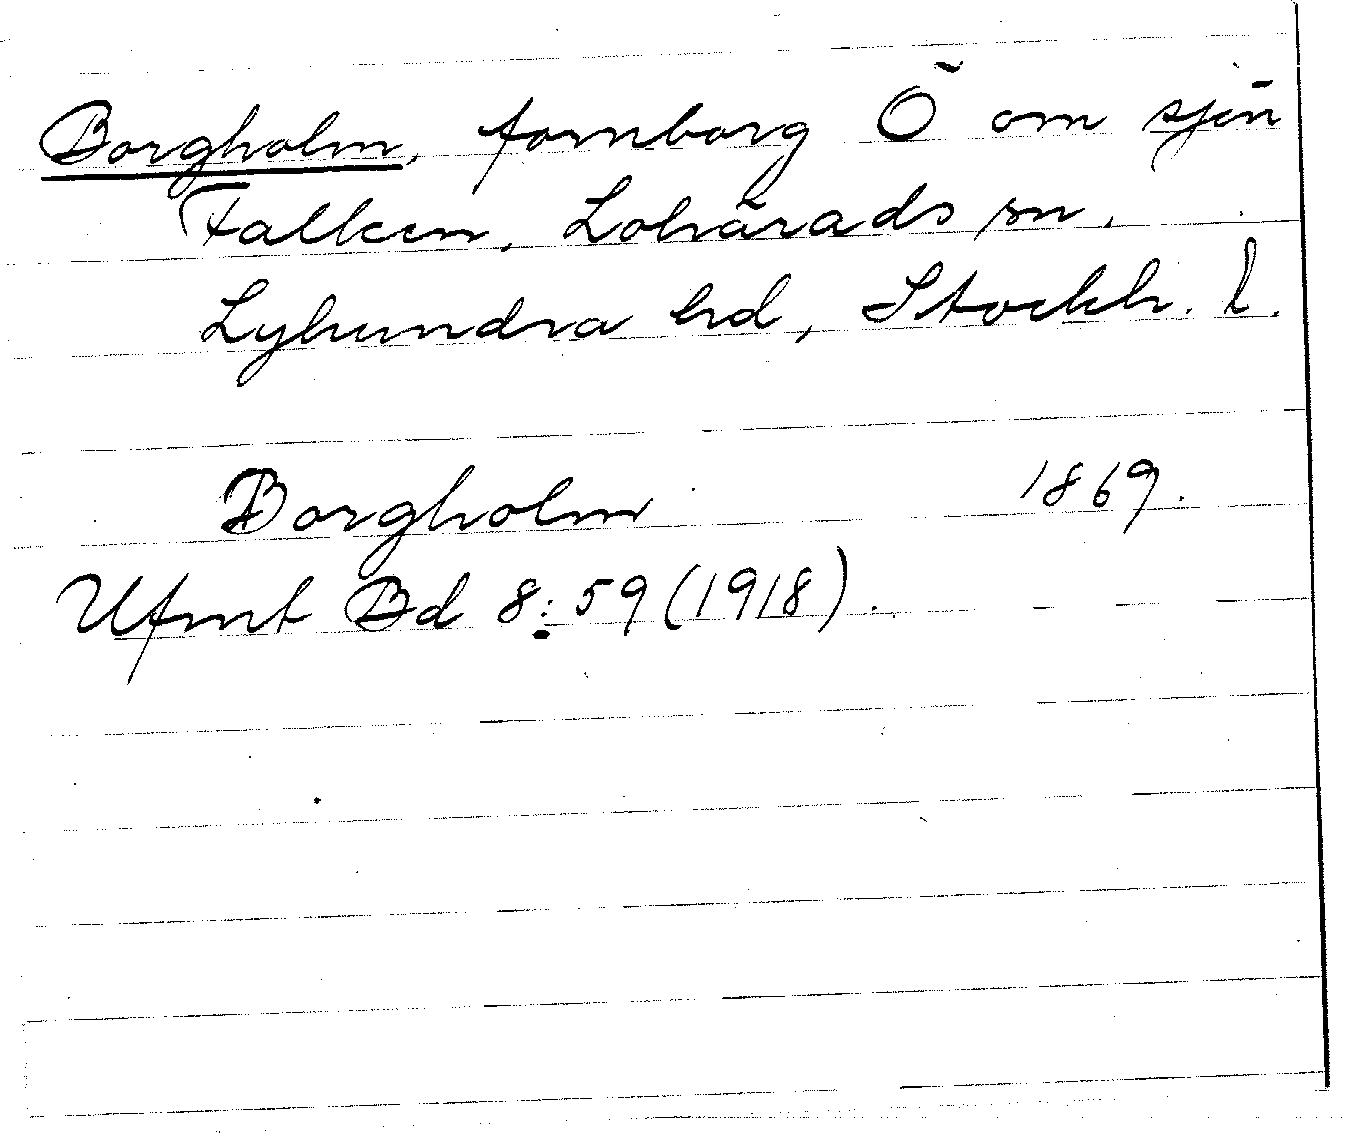 Borgholm, fornborg Ö om sjön
Falken, Lohärads sn,
Lyhundra hd, Stockh. l.
Borgholm 1869.
Ufmt Bd 8:59 (1918).